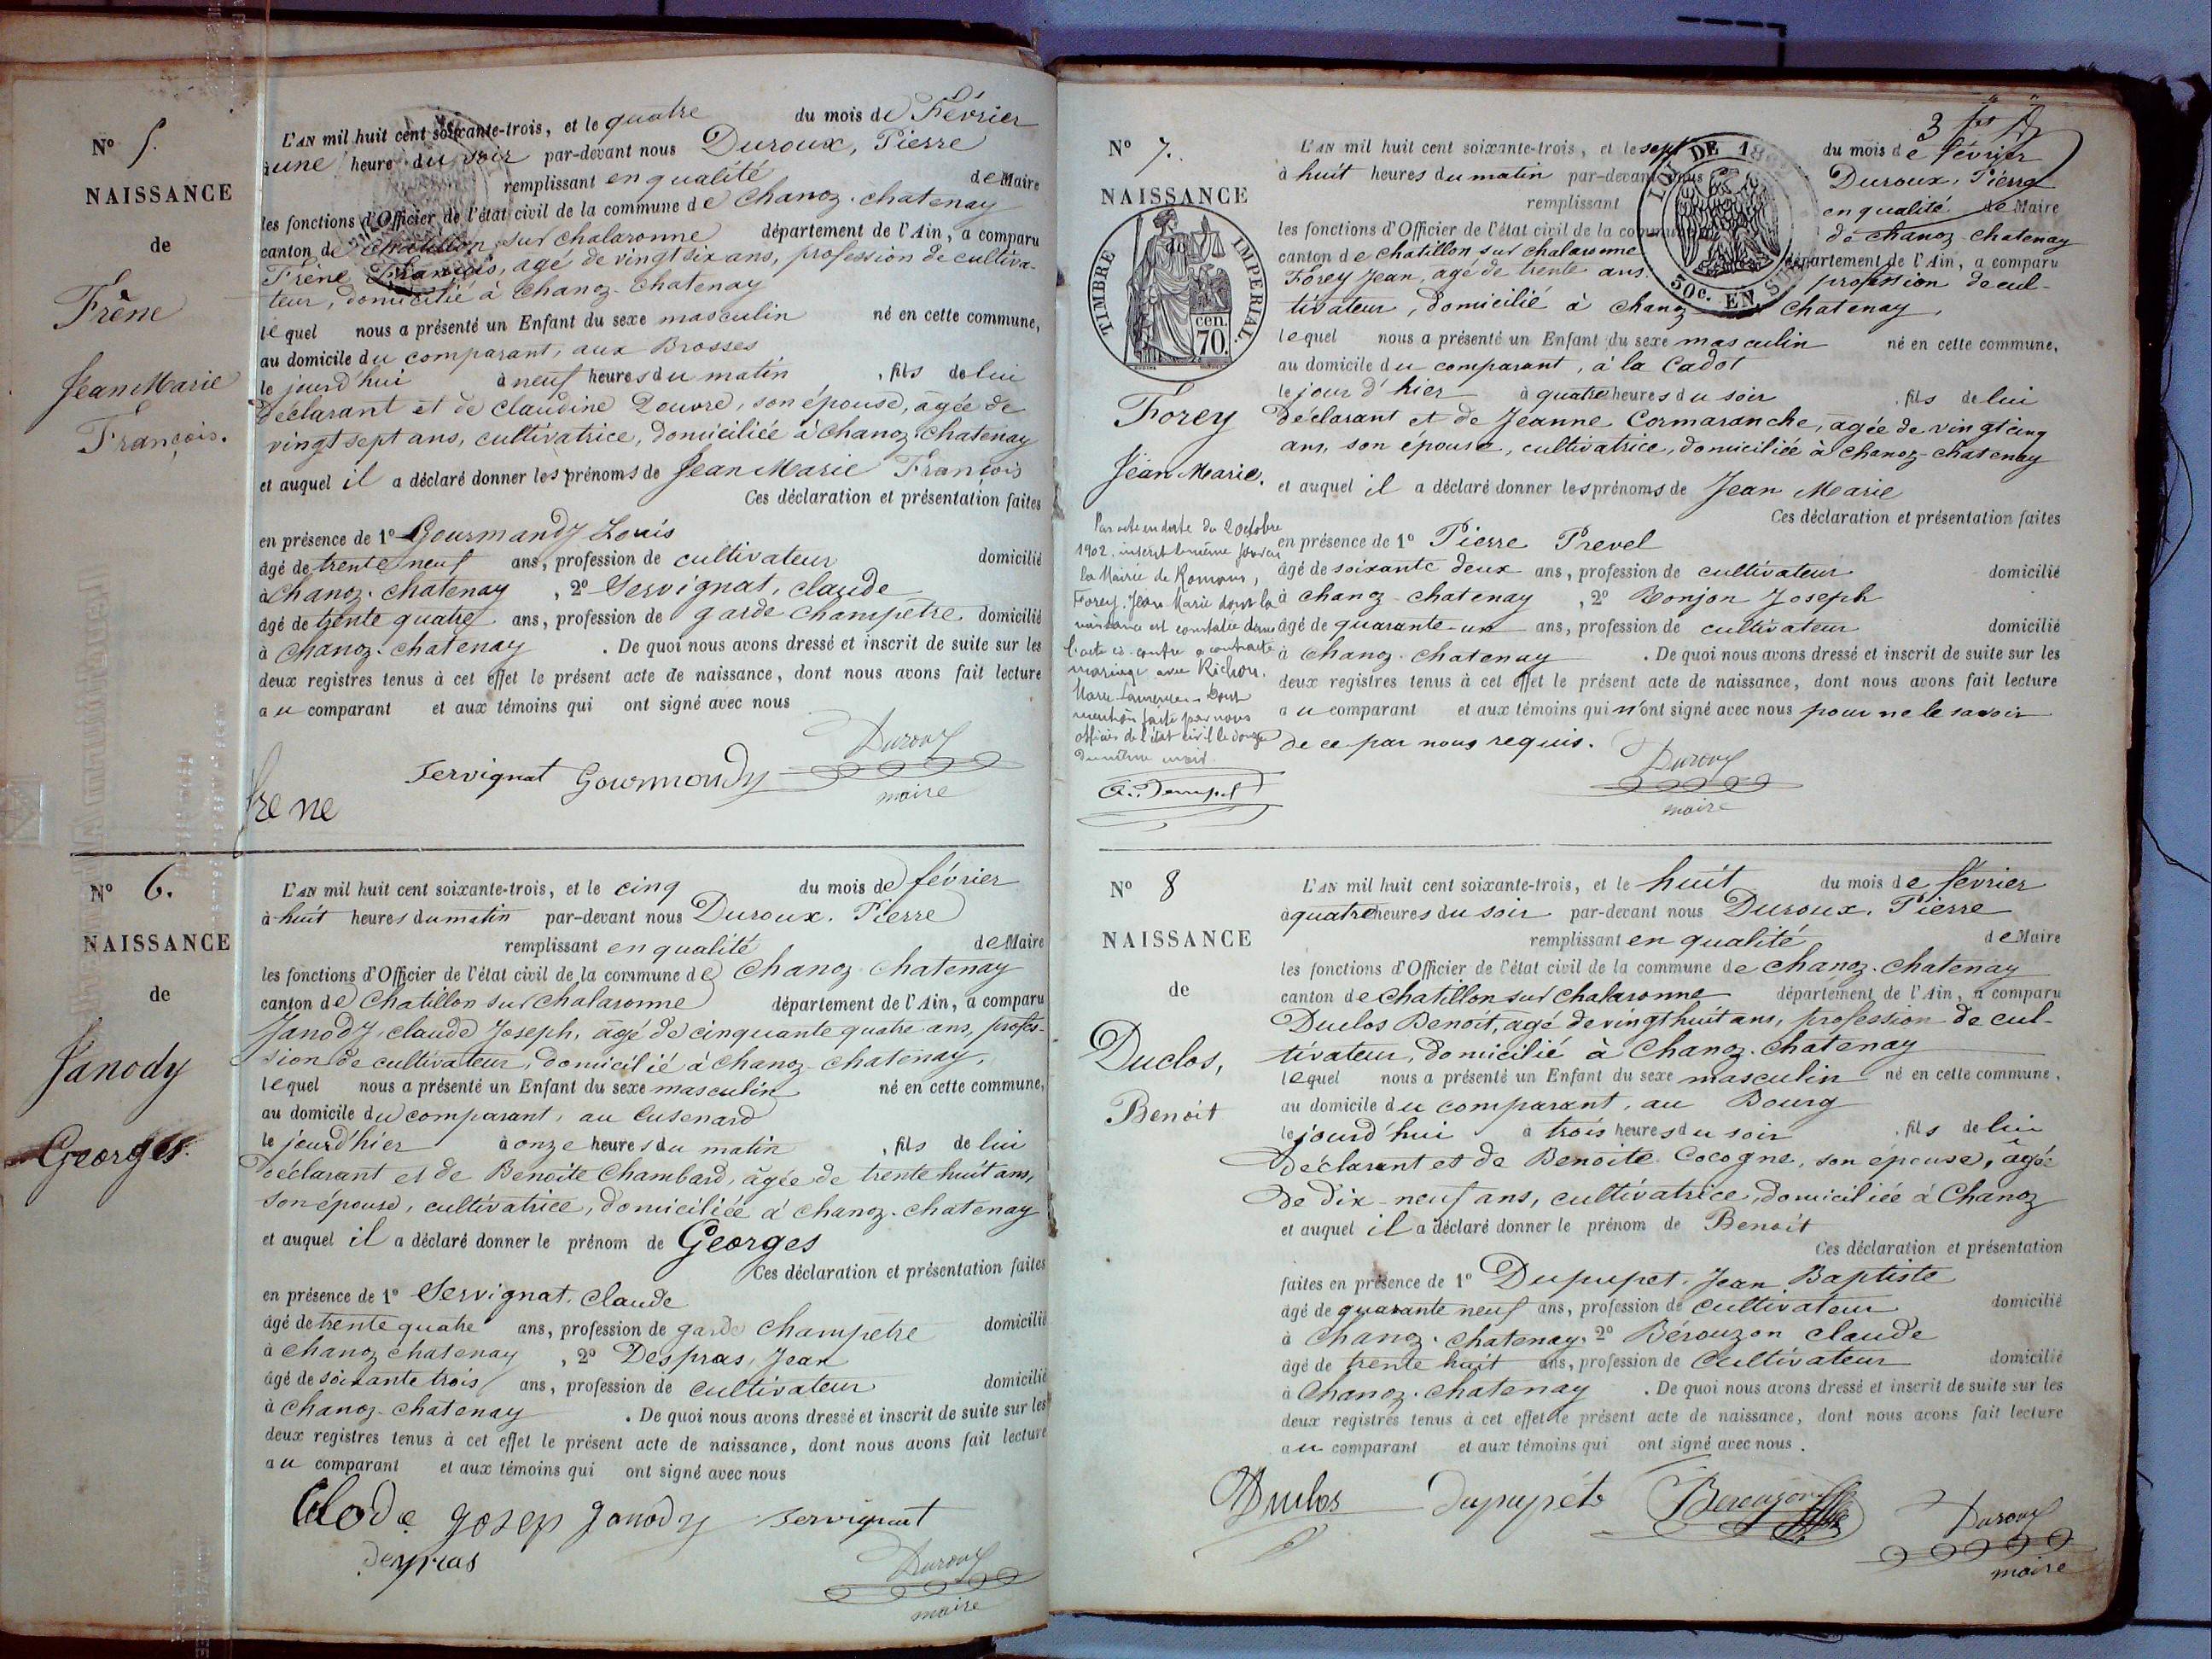 N° 5.
NAISSANCE
de
Frêne
Jean Marie
François.
L'AN mil huit cent soixante-trois, et le quatre du mois de Février
à une heure du soir par-devant nous Duroux, Pierre
remplissant en qualité de Maire
les fonctions d'Officier de l'état civil de la commune de Chanoz-chatenay
canton de Chatillon sur chalaronne département de l'Ain, a comparu
Frêne François, agé de vingt six ans, profession de cultiva-
teur, domicilié à Chanoz-Chatenay
lequel nous a présenté un Enfant du sexe masculin né en cette commune,
au domicile du comparant, aux Brosses
le jourd'hui à neuf heures du matin, fils de lui
Déclarant et de Claudine Louvre, son épouse, agée de
vingt sept ans, cultivatrice, domiciliée à Chanoz-Chatenay
et auquel il a déclaré donner les prénoms de Jean Marie François
Ces déclaration et présentation faites
en présence de 1° Gourmandy Louis
âgé de trente neuf ans, profession de cultivateur domicilié
à Chanoz-chatenay, 2° Servignat, claude
âgé de trente quatre ans, profession de garde-champetre domicilié
à Chanoz-chatenay. De quoi nous avons dressé et inscrit de suite sur les
deux registres tenus à cet effet le présent acte de naissance, dont nous avons fait lecture
au comparant et aux témoins qui ont signé avec nous
Servignat Gourmondy Duroux
maire
frene
N° 6.
NAISSANCE
de
Janody
Georges.
L'AN mil huit cent soixante-trois, et le cinq du mois de février
à huit heures du matin par-devant nous Duroux, Pierre
remplissant en qualité de Maire
les fonctions d'Officier de l'état civil de la commune de Chanoz-chatenay
canton de Chatillon sur chalaronne département de l'Ain, a comparu
Janody claude Joseph, agé de cinquante quatre ans, profes-
sion de cultivateur, domicilié à Chanoz-chatenay,
lequel nous a présenté un Enfant du sexe masculin né en cette commune,
au domicile du comparant, au Cusenard
le jourd'hier à onze heures du matin, fils de lui
Déclarant et de Benoite Chambard, agée de trente huit ans,
son épouse, cultivatrice, domiciliée à Chanoz-chatenay
et auquel il a déclaré donner le prénom de Georges
Ces déclaration et présentation faites
en présence de 1° Servignat, Claude
âgé de trente quatre ans, profession de garde champetre domicilié
à Chanoz chatenay, 2° Despras, Jean
âgé de soixante trois ans, profession de cultivateur domicilié
à Chanoz-chatenay. De quoi nous avons dressé et inscrit de suite sur les
deux registres tenus à cet effet le présent acte de naissance, dont nous avons fait lecture
au comparant et aux témoins qui ont signé avec nous
Clode gosep Janody Servignat
despras Duroux
maire
3
N° 7.
NAISSANCE
de
TIMBRE IMPERIAL.
cen. 70.
LOI DE 1862
50c. EN SUS
Forey
Jean Marie.
L'AN mil huit cent soixante-trois, et le sept du mois de février
à huit heures du matin par-devant nous Duroux, Pierre
remplissant en qualité de Maire
les fonctions d'Officier de l'état civil de la commune de Chanoz-Chatenay
canton de Chatillon sur chalaronne département de l'Ain, a comparu
Forey Jean, agé de trente ans profession de cul-
tivateur, domicilié à Chanoz Chatenay,
lequel nous a présenté un Enfant du sexe masculin né en cette commune,
au domicile du comparant, à la Cadot
le jour d'hier à quatre heures du soir, fils de lui
Déclarant et de Jeanne Cormaranche, agée de vingt cinq
ans, son épouse, cultivatrice, domiciliée à Chanoz-chatenay
et auquel il a déclaré donner les prénoms de Jean Marie
Ces déclaration et présentation faites
en présence de 1° Pierre Prevel
âgé de soixante deux ans, profession de cultivateur domicilié
à Chanoz-chatenay, 2° Bonjon Joseph
âgé de quarante-un ans, profession de cultivateur domicilié
à Chanoz-chatenay. De quoi nous avons dressé et inscrit de suite sur les
deux registres tenus à cet effet le présent acte de naissance, dont nous avons fait lecture
au comparant et aux témoins qui n'ont signé avec nous pour ne le savoir
de ce par nous requis. Duroux
maire
Par acte en date du 2 octobre
1902, inscrit le même jour en
la Mairie de Romans,
Forey, Jean Marie dont la
naissance est constatée dans
l'acte ci-contre a contracté
mariage avec Richon,
Marie Dont
mention faite par nous
officier de l'état civil le douze
du même mois
N° 8
NAISSANCE
de
Duclos,
Benoit
L'AN mil huit cent soixante-trois, et le huit du mois de février
à quatre heures du soir par-devant nous Duroux, Pierre
remplissant en qualité de Maire
les fonctions d'Officier de l'état civil de la commune de Chanoz-chatenay
canton de Chatillon sur Chalaronne département de l'Ain, a comparu
Duclos Benoit, agé de vingt huit ans, profession de cul-
tivateur, domicilié à Chanoz-Chatenay
lequel nous a présenté un Enfant du sexe masculin né en cette commune,
au domicile du comparant, au Bourg
le jourd'hui à trois heures du soir, fils de lui
Déclarant et de Benoite Cocogne, son épouse, agée
de dix-neuf ans, cultivatrice, domiciliée à Chanoz
et auquel il a déclaré donner le prénom de Benoit
Ces déclaration et présentation
faites en présence de 1° Dupupet, Jean Baptiste
âgé de quarante neuf ans, profession de cultivateur domicilié
à Chanoz-chatenay, 2° Bérouzon Claude
âgé de trente huit ans, profession de cultivateur domicilié
à Chanoz-chatenay. De quoi nous avons dressé et inscrit de suite sur les
deux registres tenus à cet effet le présent acte de naissance, dont nous avons fait lecture
au comparant et aux témoins qui ont signé avec nous.
Duclos dupupét Berouzon Duroux
maire